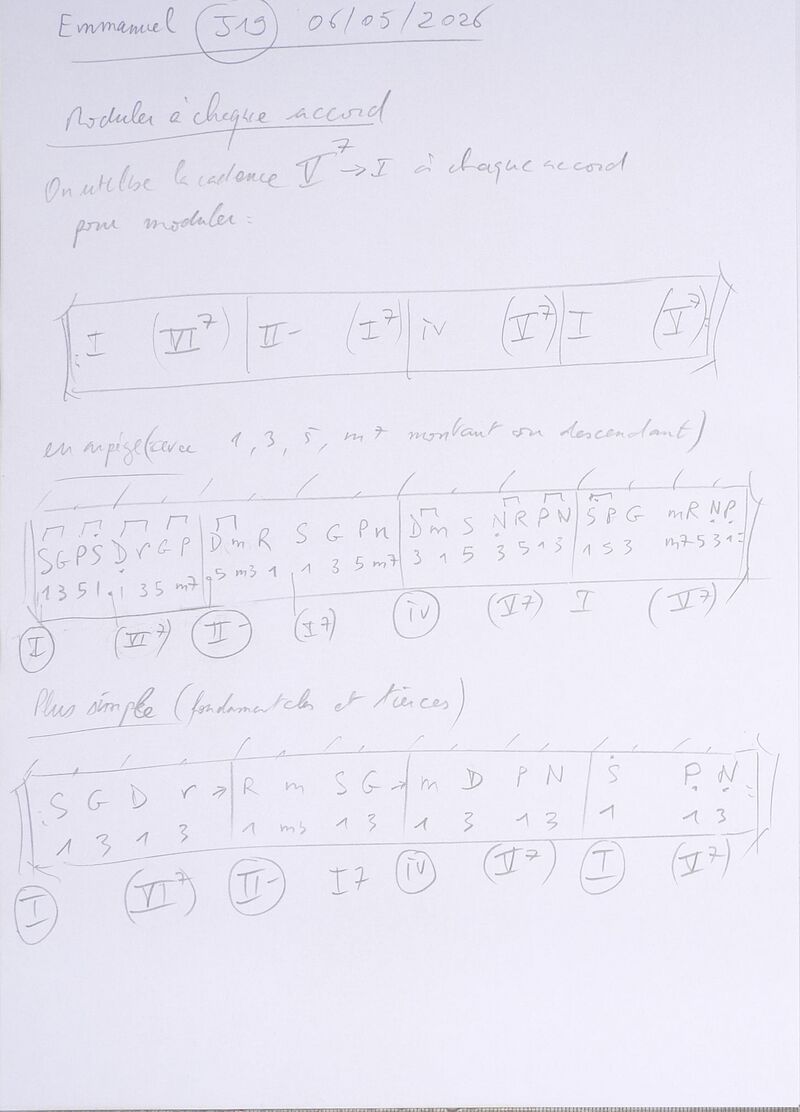 Emmanuel J19 06/05/2026
Moduler à chaque accord
On utilise la cadence V7 → I à chaque accord
pour moduler :
I (VI7) | II- (I7) | iv (V7) | I (V7)
en arpège (avec 1, 3, 5, m7 montant ou descendant)
S G P S D r G P | D m R S G P n | D m S N R P N | S P G m R N P
1 3 5 1 1 3 5 m7 | 5 m3 1 1 3 5 m7 | 3 1 5 3 5 1 3 | 1 5 3 m7 5 3 1
I (VI7) II- (I7) iv (V7) I (V7)
Plus simple (fondamentales et tierces)
S G D r → | R m S G → | m D P N | S P N
1 3 1 3 | 1 m3 1 3 | 1 3 1 3 | 1 1 3
I (VI7) II- I7 iv (V7) I (V7)